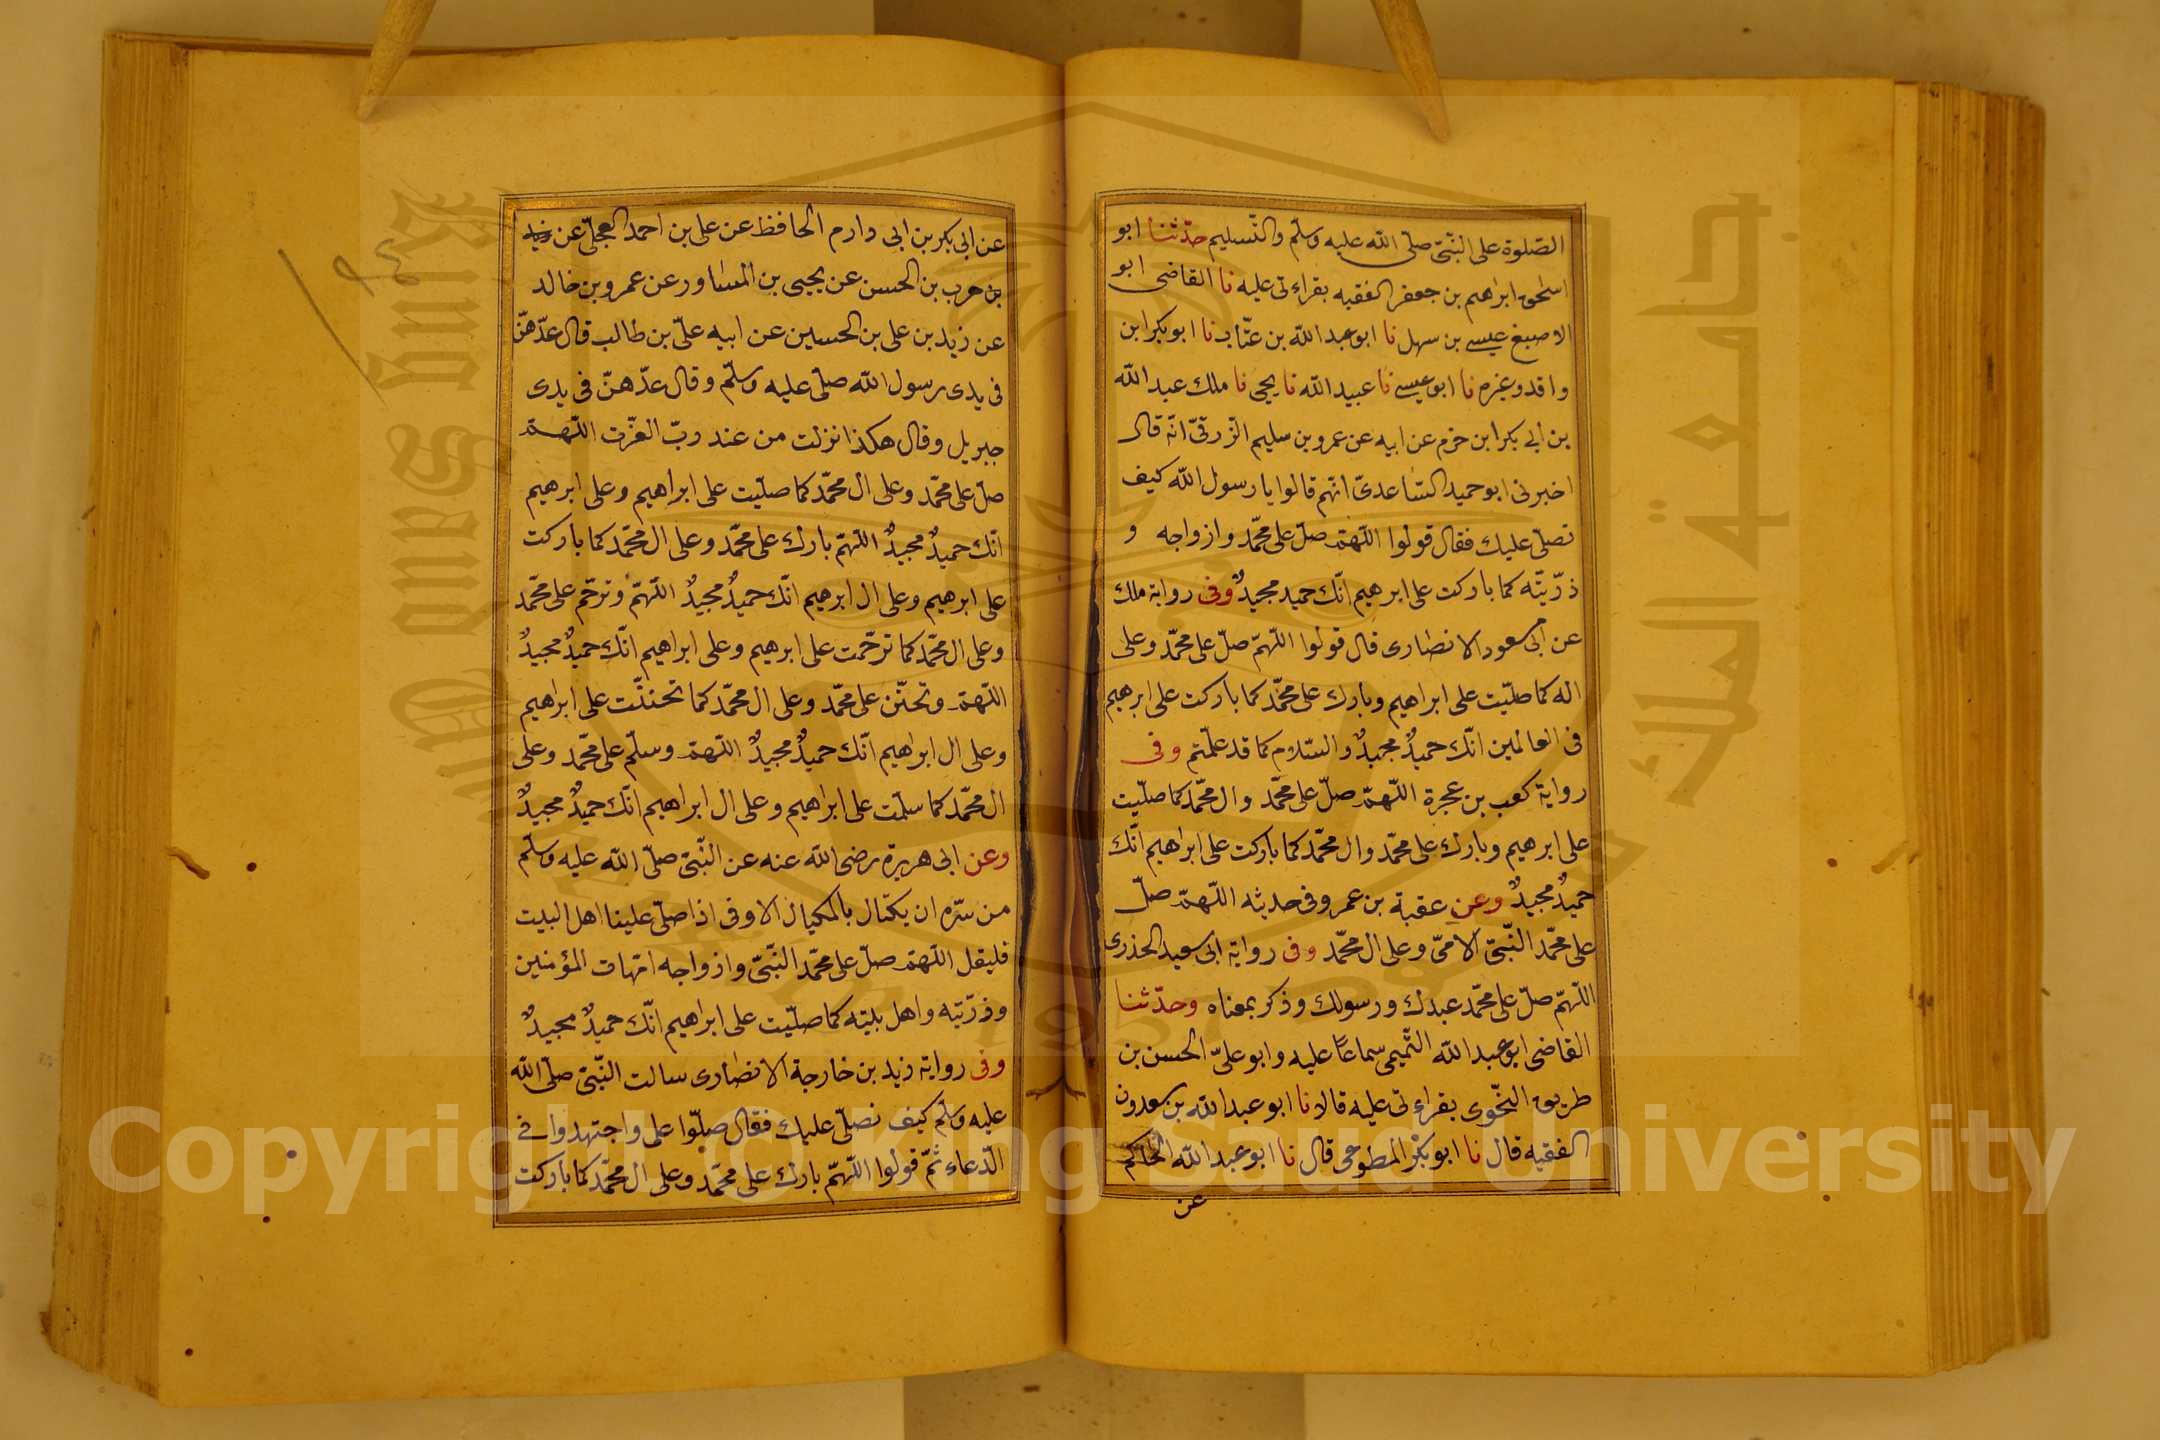 الصّلوة على النّبىّ صلّى الله عليه وسلّم والتّسليم حدّثنا ابو
اسحٰق ابراهيم بن جعفر الفقيه بقراءتى عليه نا القاضى ابو
الاصبغ عيسى بن سهل نا ابو عبد الله بن عتّاب نا ابو بكر ابن
واقد وغيره نا ابو عيسى نا عبيد الله نا يحيى نا ملك عبد الله
بن ابى بكر ابن حزم عن ابيه عن عمرو بن سليم الزّرقىّ انّه قال
اخبرنى ابو حميد السّاعدىّ انّهم قالوا يا رسول الله كيف
نصلّى عليك فقال قولوا اللّهمّ صلّ على محمّد وازواجه و
ذرّيّته كما باركت على ابرهيم انّك حميد مجيدٌ وفى رواية ملك
عن ابى مسعود الانصارى قال قولوا اللّهمّ صلّ على محمّد وعلى
اله كما صلّيت على ابراهيم وبارك على محمّد كما باركت على ابرهيم
فى العالمين انّك حميدٌ مجيدٌ والسّلام كما قد علّمتم وفى
رواية كعب بن عجرة اللّهمّ صلّ على محمّد وال محمّد كما صلّيت
على ابرهيم وبارك على محمّد وال محمّد كما باركت على ابراهيم انّك
حميدٌ مجيدٌ وعن عقبة بن عمرو فى حديثه اللّهمّ صلّ
على محمّد النّبىّ الامّىّ وعلى ال محمّد وفى رواية ابى سعيد الخذرى
اللّهمّ صلّ على محمّد عبدك ورسولك وذكر بمعناه وحدّثنا
القاضى ابو عبد الله التّميمى سماعًا عليه وابو علىّ الحسن بن
طريق النّحوى بقراءتى عليه قالا نا ابو عبد الله بن سعدون
الفقيه قال نا ابو بكر المطوعى قال نا ابو عبد الله الحاكم
عن
عن ابى بكر بن ابى دارم الحافظ عن على بن احمد العجلىّ عن
بن حرب بن الحسن عن يحيى بن المساور عن عمرو بن خالد
عن زيد بن على بن الحسين عن ابيه علىّ بن طالب قال عدّهنّ
فى يدى رسول الله صلّى عليه وسلّم وقال عدّهنّ فى يدى
جبريل وقال هكذا نزلت من عند ربّ العزّت اللّهمّ
صلّ على محمّد وعلى ال محمّد كما صلّيت على ابراهيم وعلى ابرهيم
انّك حميدٌ مجيدٌ اللّهمّ بارك على محمّد وعلى ال محمّد كما باركت
على ابرهيم وعلى ال ابرهيم انّك حميدٌ مجيدٌ اللّهمّ وترحّم على محمّد
وعلى ال محمّد كما ترحّمت على ابرهيم وعلى ابراهيم انّك حميدٌ مجيدٌ
اللّهمّ وتحنّن على محمّد وعلى ال محمّد كما تحننّت على ابراهيم
وعلى ال ابراهيم انّك حميدٌ مجيدٌ اللّهمّ وسلّم على محمّد وعلى
ال محمّد كما سلّمت على ابراهيم وعلى ال ابراهيم انّك حميدٌ مجيدٌ
وعن ابى هريرة رضى الله عنه عن النّبىّ صلّى الله عليه وسلّم
من سرّه ان يكتال بالمكيال الاوفى اذا صلّى علينا اهل البيت
فليقل اللّهمّ صلّ على محمّد النّبىّ وازواجه امّهات المؤمنين
وذرّيّته واهل بيته كما صلّيت على ابراهيم انّك حميدٌ مجيدٌ
وفى رواية زيد بن خارجة الانصارى سالت النّبىّ صلّى الله
عليه وسلّم كيف نصلّى عليك فقال صلّوا على واجتهدوا فى
الدّعاء ثمّ قولوا اللّهمّ بارك على محمّد وعلى ال محمّد كما باركت
Copyright © King Saud University
King Saud University
جامعة الملك سعود
1957